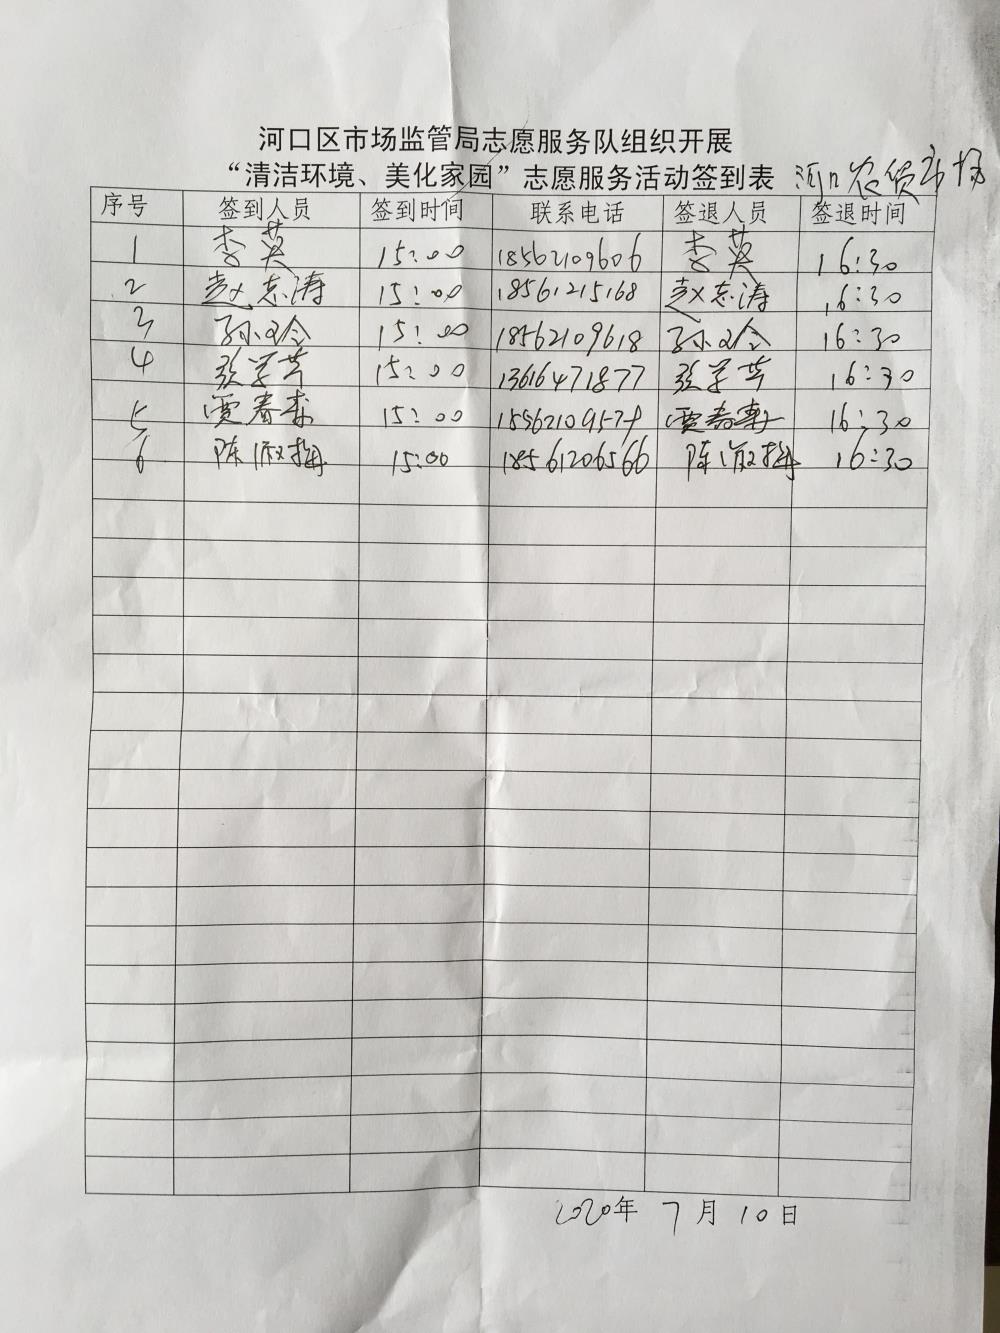 河口区市场监管局志愿服务队组织开展
“清洁环境、美化家园”志愿服务活动签到表 河口农贸市场
序号 签到人员 签到时间 联系电话 签退人员 签退时间
1 李英 15:00 18562109606 李英 16:30
2 赵志涛 15:00 18561215168 赵志涛 16:30
3 孙 15:00 18562109618 孙 16:30
4 张学芹 15:00 13616471877 张学芹 16:30
5 贾春寿 15:00 贾春寿 16:30
6 陈淑梅 15:00 18561206566 陈淑梅 16:30
2020年 7月10日